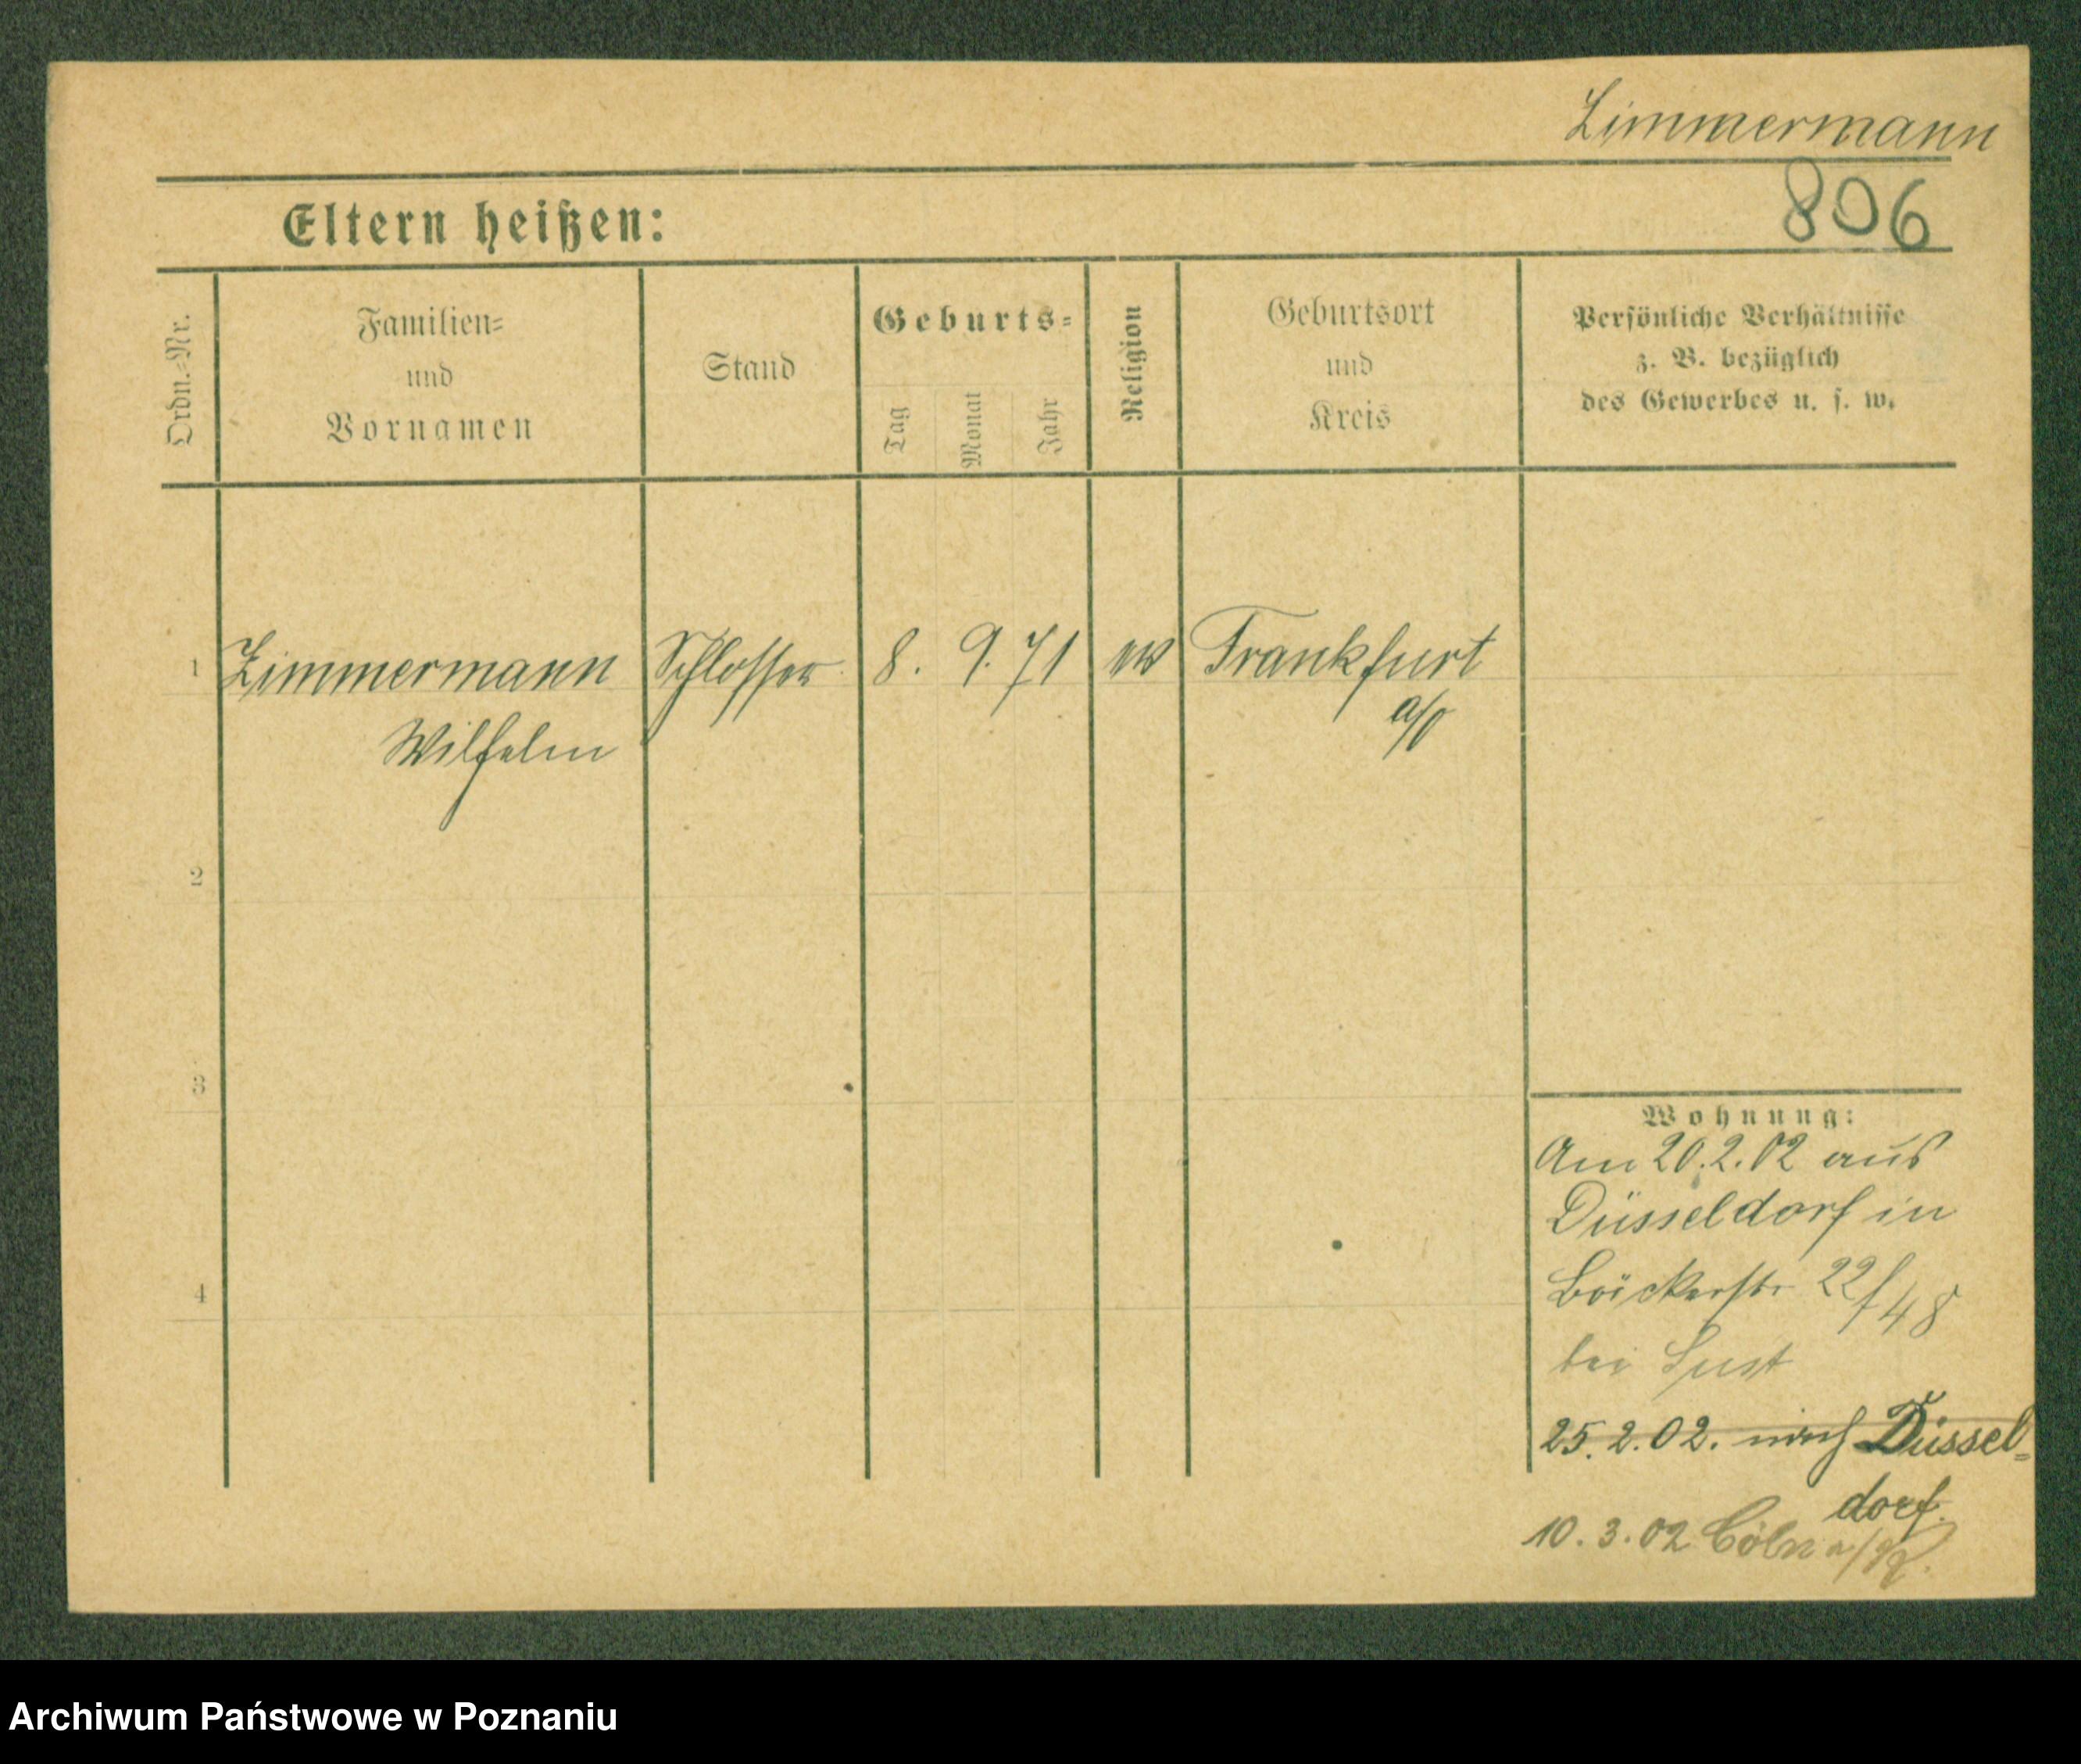 Zimmermann
806
Eltern heißen:
Ordn.-Nr.
Familien-
und
Vornamen
Stand
Geburts-
Tag
Monat
Jahr
Religion
Geburtsort
und
Kreis
Persönliche Verhältnisse
z. B. bezüglich
des Gewerbes u. s. w.
1 Zimmermann Schlosser 8. 9. 71 ev Frankfurt
a/O
Wilhelm
2
3
4
Wohnung:
Am 20.2.02 aus
Düsseldorf in
Bäckerstr 22/48
bei
25.2.02. nach Düssel-
dorf.
10.3.02 Cöln a/R.